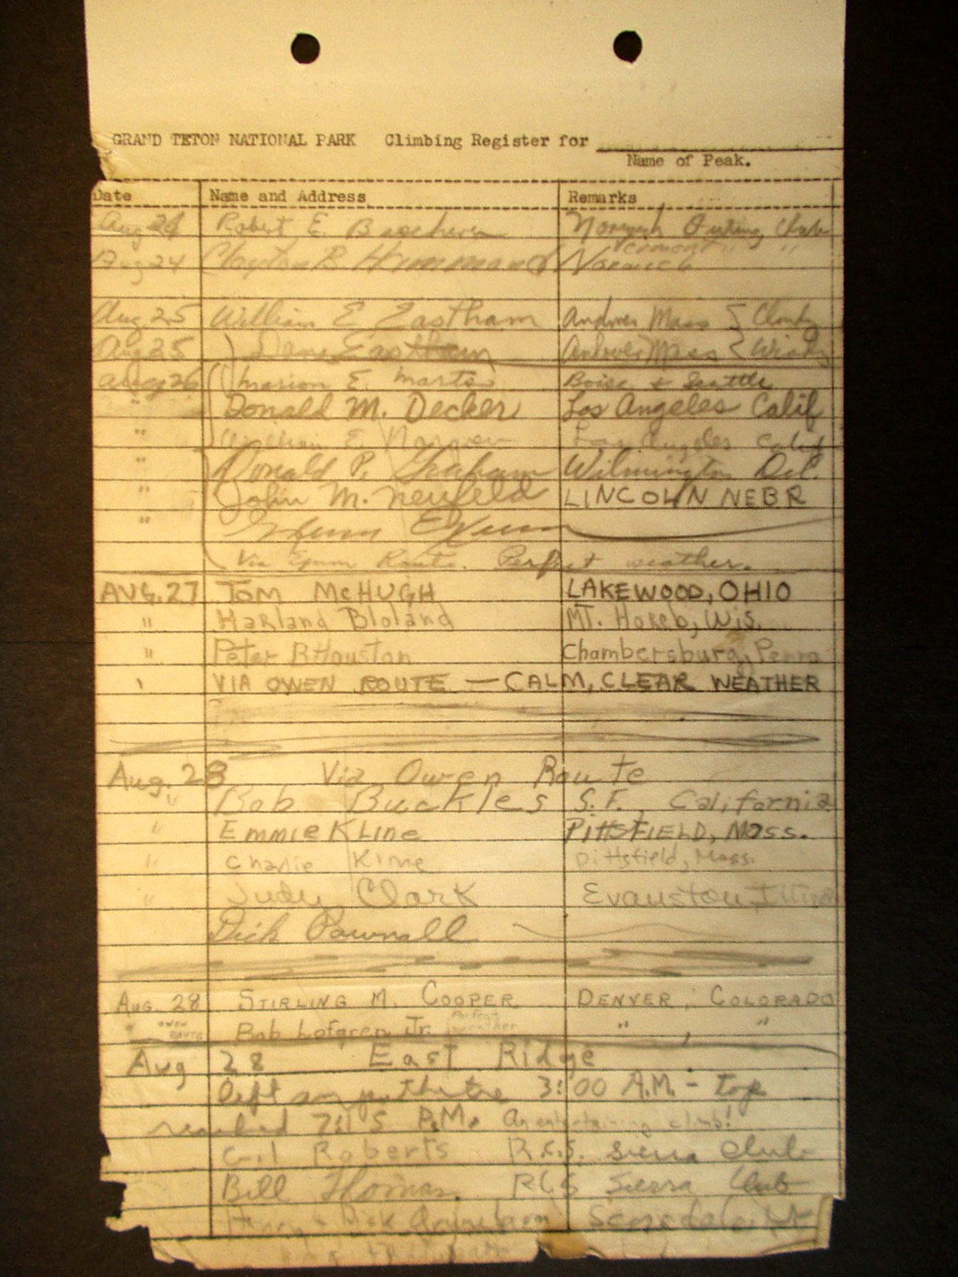 GRAND TETON NATIONAL PARK Climbing Register for
Name of Peak.
Date Name and Address Remarks
Aug 24 Robert E. Outing Club
Aug 24 Clayton B.
Aug 25 William E Eastham Andover Mass { Cloudy
Aug 25 Eastham Andover Mass { Windy
Aug 26 Marion E. Marts Boise & Seattle
" Donald M. Decker Los Angeles Calif
" William E. Los Angeles Calif
" Donald P. Graham Wilmington Del.
" John M. Neufeld LINCOLN NEBR
" Glenn Exum
Via Exum Route. Perfect weather.
AUG. 27 TOM McHUGH LAKEWOOD, OHIO
" Harland Bloland MT. Horeb, Wis.
" Peter B Houston Chambersburg, Penna
VIA OWEN ROUTE — CALM, CLEAR WEATHER
Aug. 28 Via Owen Route
" Bob Buckles S.F. California
" EMMIE KLINE PITTSFIELD, MASS.
" Charlie Kline Pittsfield, Mass.
" Judy Clark Evanston, Illinois
Dick Pownall
AUG. 28 STIRLING M. COOPER DENVER, COLORADO
" OWEN ROUTE Bob Lofgren Jr. Perfect weather " , "
Aug 28 East Ridge
left 3:00 A.M. - top
reached 7:15 P.M. An entertaining climb!
Gil Roberts R.C.S. Sierra Club
Bill RCS Sierra Club
& Dick